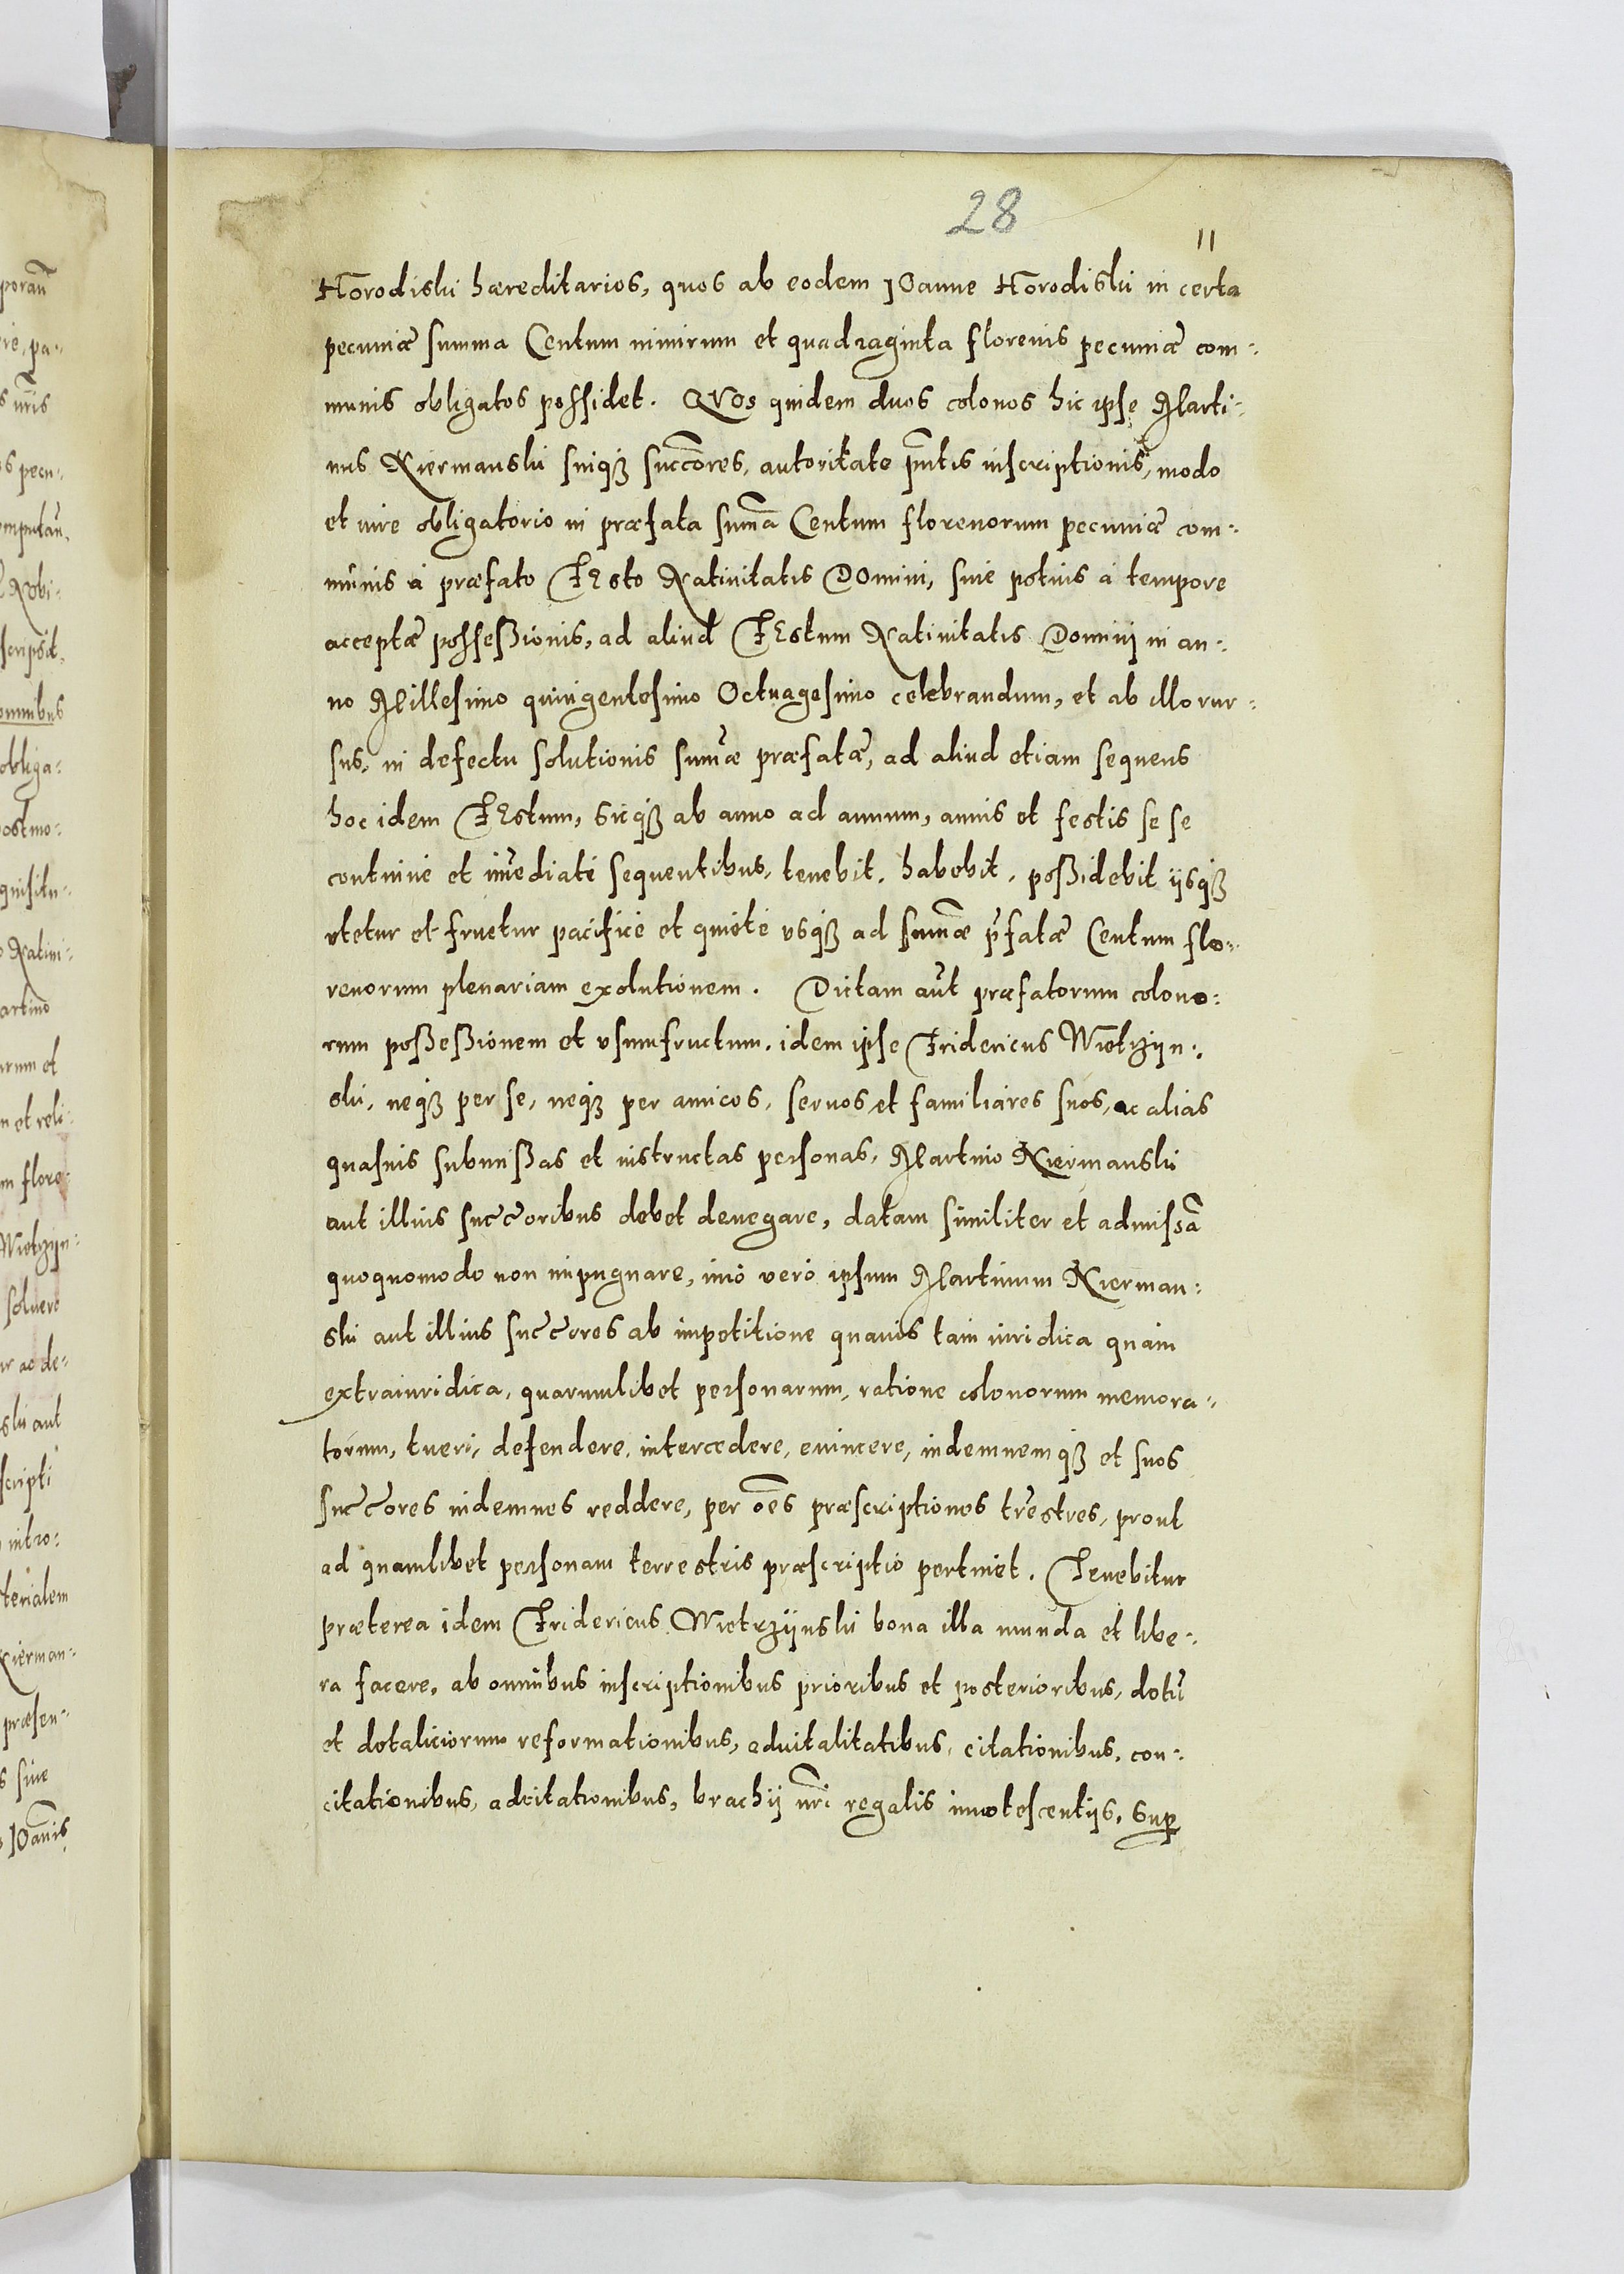 28
11
Horodiski hæreditarios, quos ab eodem JOanne Horodiski in certa
pecuniæ summa Centum nimirum et quadraginta florenis pecuniæ com:
munis obligatos possidet. QVos quidem duos colonos hic ipse Marti:
nus Niermanski suiqȝ succ̃ores, autoritate p̃ntis inscriptionis, modo
et iure obligatorio in præfata sum̃a Centum florenorum pecuniæ com:
munis à præfato FEsto Natiuitatis DOmini, siue potius à tempore
acceptæ posseßionis, ad aliud FEstum Natiuitatis Dominij in an:
no Millesimo quingentesimo Octuagesimo celebrandum, et ab illo rur:
sus, in defectu solutionis sum̃æ præfatæ, ad aliud etiam sequens
hoc idem FEstum, sicqȝ ab anno ad annum, annis et festis se se
continuè et im̃ediatè sequentibus, tenebit, habebit, poßidebit ijsqȝ
vtetur et fruetur pacificè et quietè vsqȝ ad sum̃æ p̃fatæ Centum flo:
renorum plenariam exolutionem. Dictam aũt præfatorum colono:
rum poßeßionem et vsumfructum, idem ipse Fridericus Wietrzijn:
ski, neqȝ per se, neqȝ per amicos, seruos et familiares suos, ac alias
quasuis submißas et instructas personas, Martino Niermanski
aut illius succ̃oribus debet denegare, datam similiter et admissã
quoquomodo non impugnare, imò verò ipsum Martinum Nierman:
ski aut illius succ̃ores ab impetitione quauis tam iuridica quàm
extraiuridica, quarumlibet personarum, ratione colonorum memora:
torum, tueri, defendere, intercedere, euincere, indemnemqȝ et suos
succ̃ores indemnes reddere, per oẽs præscriptiones tr̃estres, prout
ad quamlibet personam terrestris præscriptio pertinet. Tenebitur
præterea idem Fridericus Wietrzijnski bona illa munda et libe:
ra facere, ab omnibus inscriptionibus prioribus et posterioribus, dotũ
et dotaliciorum reformationibus, aduitalitatibus, citationibus, con:
citationibus, adcitationibus, brachij nr̃i regalis innotescentijs, sup